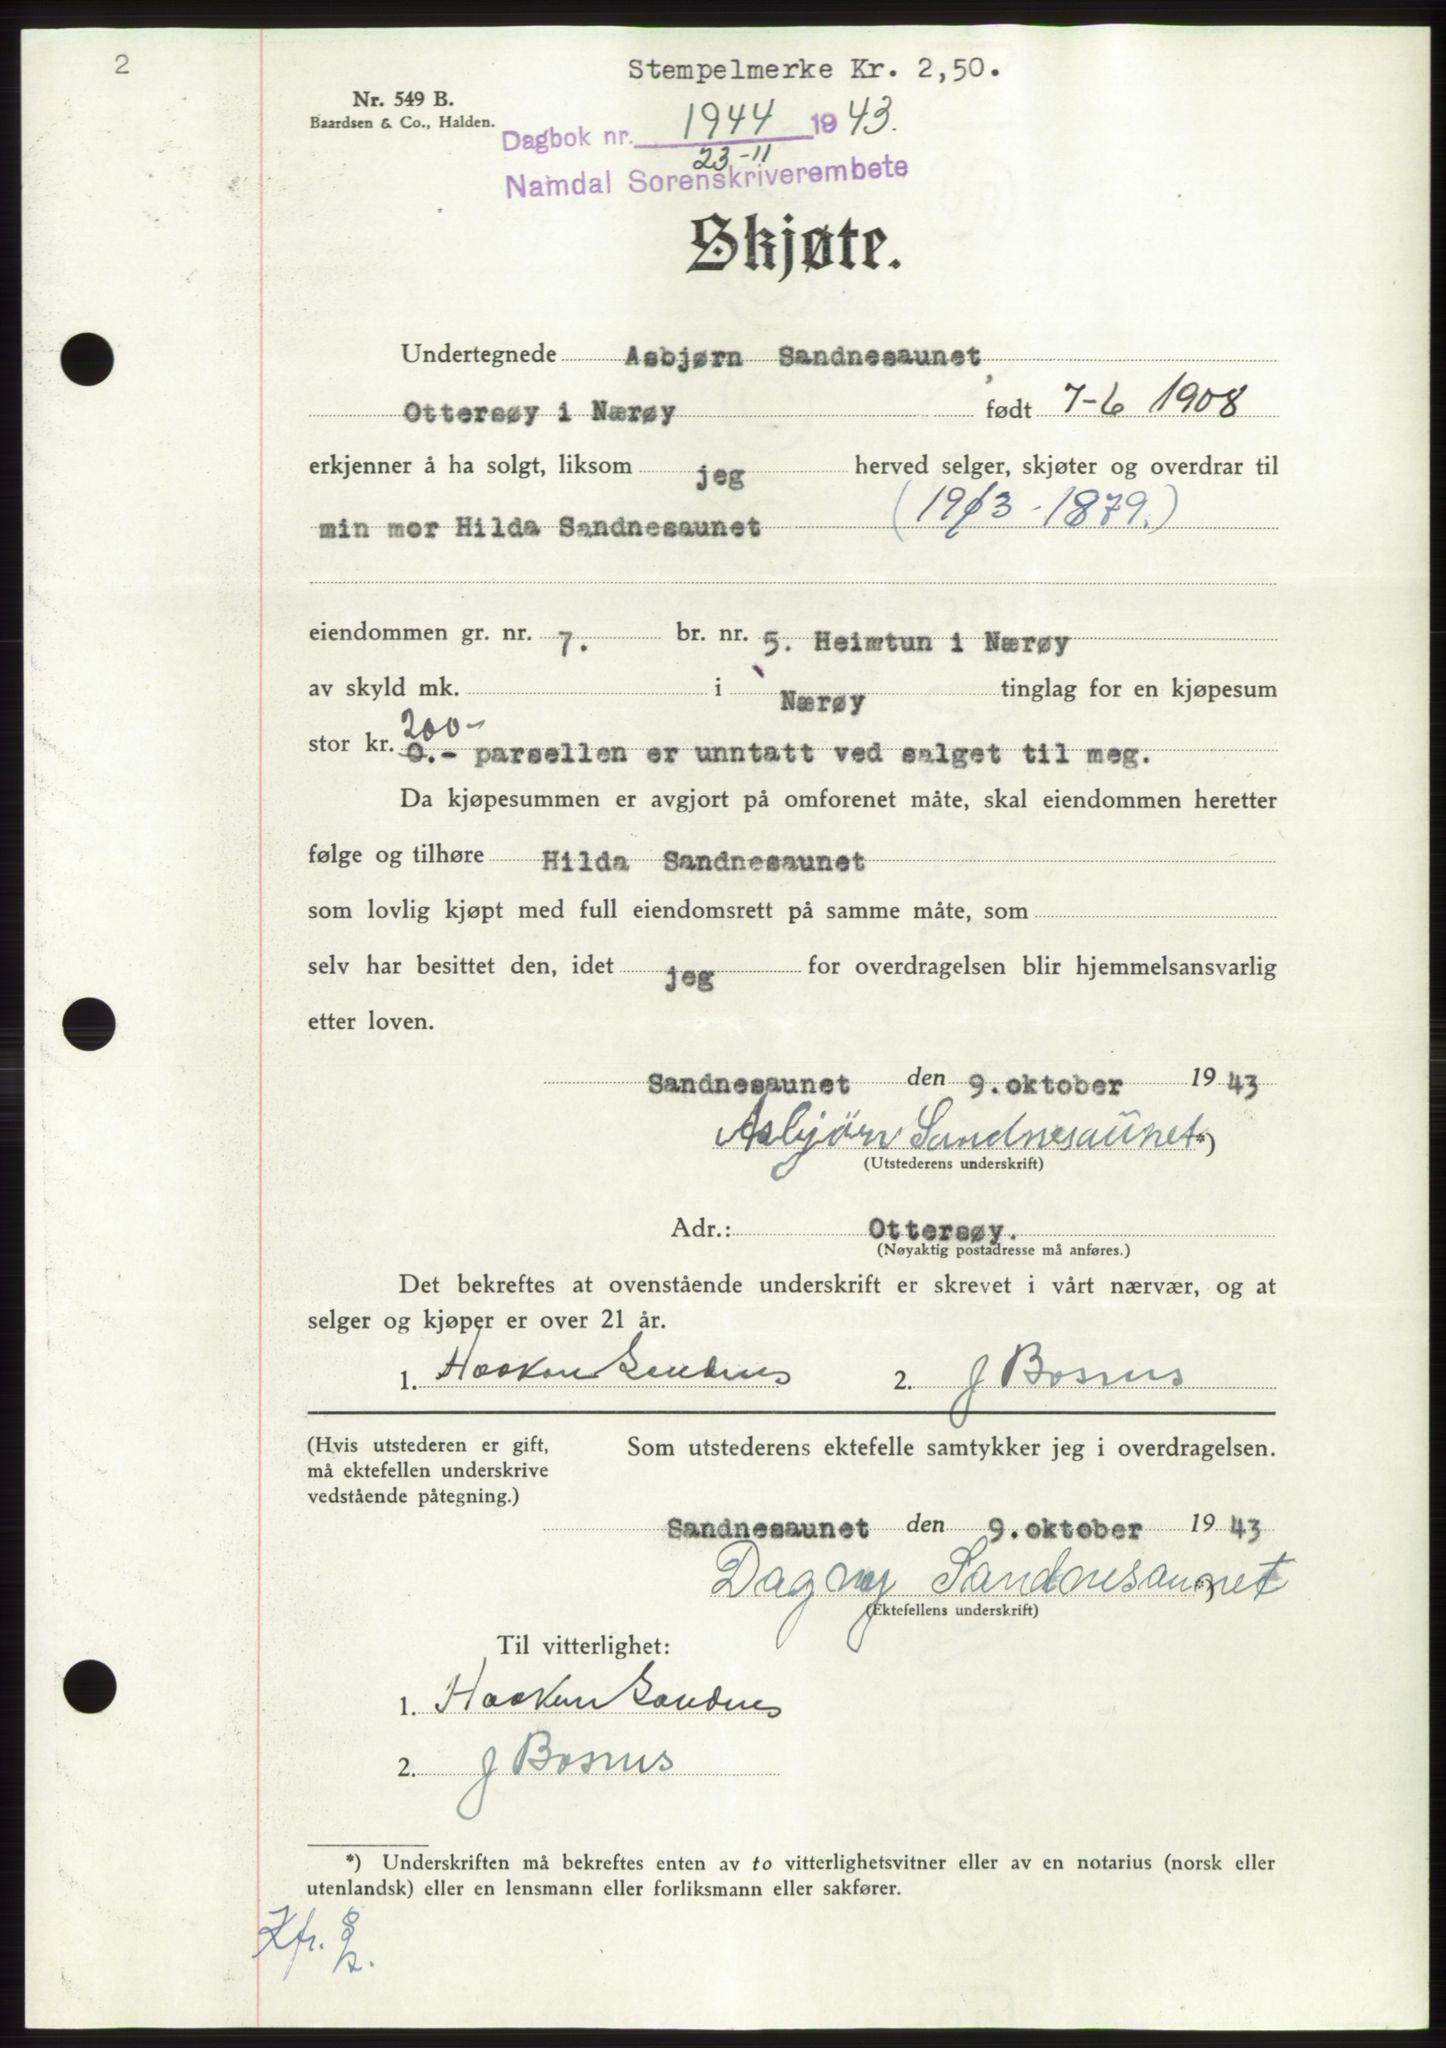 2
Stempelmerke Kr. 2,50.
Nr. 549 B.
Baardsen & Co., Halden.
Dagbok nr. 1944 1943.
23-11
Namdal Sorenskriverembete
Skjøte.
Undertegnede Asbjørn Sandnesaunet,
Ottersøy i Nærøy født 7-6 1908
erkjenner å ha solgt, liksom jeg herved selger, skjøter og overdrar til
min mor Hilda Sandnesaunet (19/3-1879.)
eiendommen gr. nr. 7. br. nr. 5. Heimtun i Nærøy
av skyld mk. i Nærøy tinglag for en kjøpesum
200-
stor kr. 0.- parsellen er unntatt ved salget til meg.
Da kjøpesummen er avgjort på omforenet måte, skal eiendommen heretter
følge og tilhøre Hilda Sandnesaunet
som lovlig kjøpt med full eiendomsrett på samme måte, som
selv har besittet den, idet jeg for overdragelsen blir hjemmelsansvarlig
etter loven.
Sandnesaunet den 9.oktober 1943
Asbjörn Sandnesaunet *)
(Utstederens underskrift)
Adr.: Ottersøy.
(Nøyaktig postadresse må anføres.)
Det bekreftes at ovenstående underskrift er skrevet i vårt nærvær, og at
selger og kjøper er over 21 år.
1. Haakon Sandnes 2. J Bosnes
(Hvis utstederen er gift, Som utstederens ektefelle samtykker jeg i overdragelsen.
må ektefellen underskrive
vedstående påtegning.)
Sandnesaunet den 9.oktober 1943
Dagny Sandnesaunet
(Ektefellens underskrift)
Til vitterlighet:
1. Haakon Sandnes
2. J Bosnes
*) Underskriften må bekreftes enten av to vitterlighetsvitner eller av en notarius (norsk eller
utenlandsk) eller en lensmann eller forliksmann eller sakfører.
Kfr.